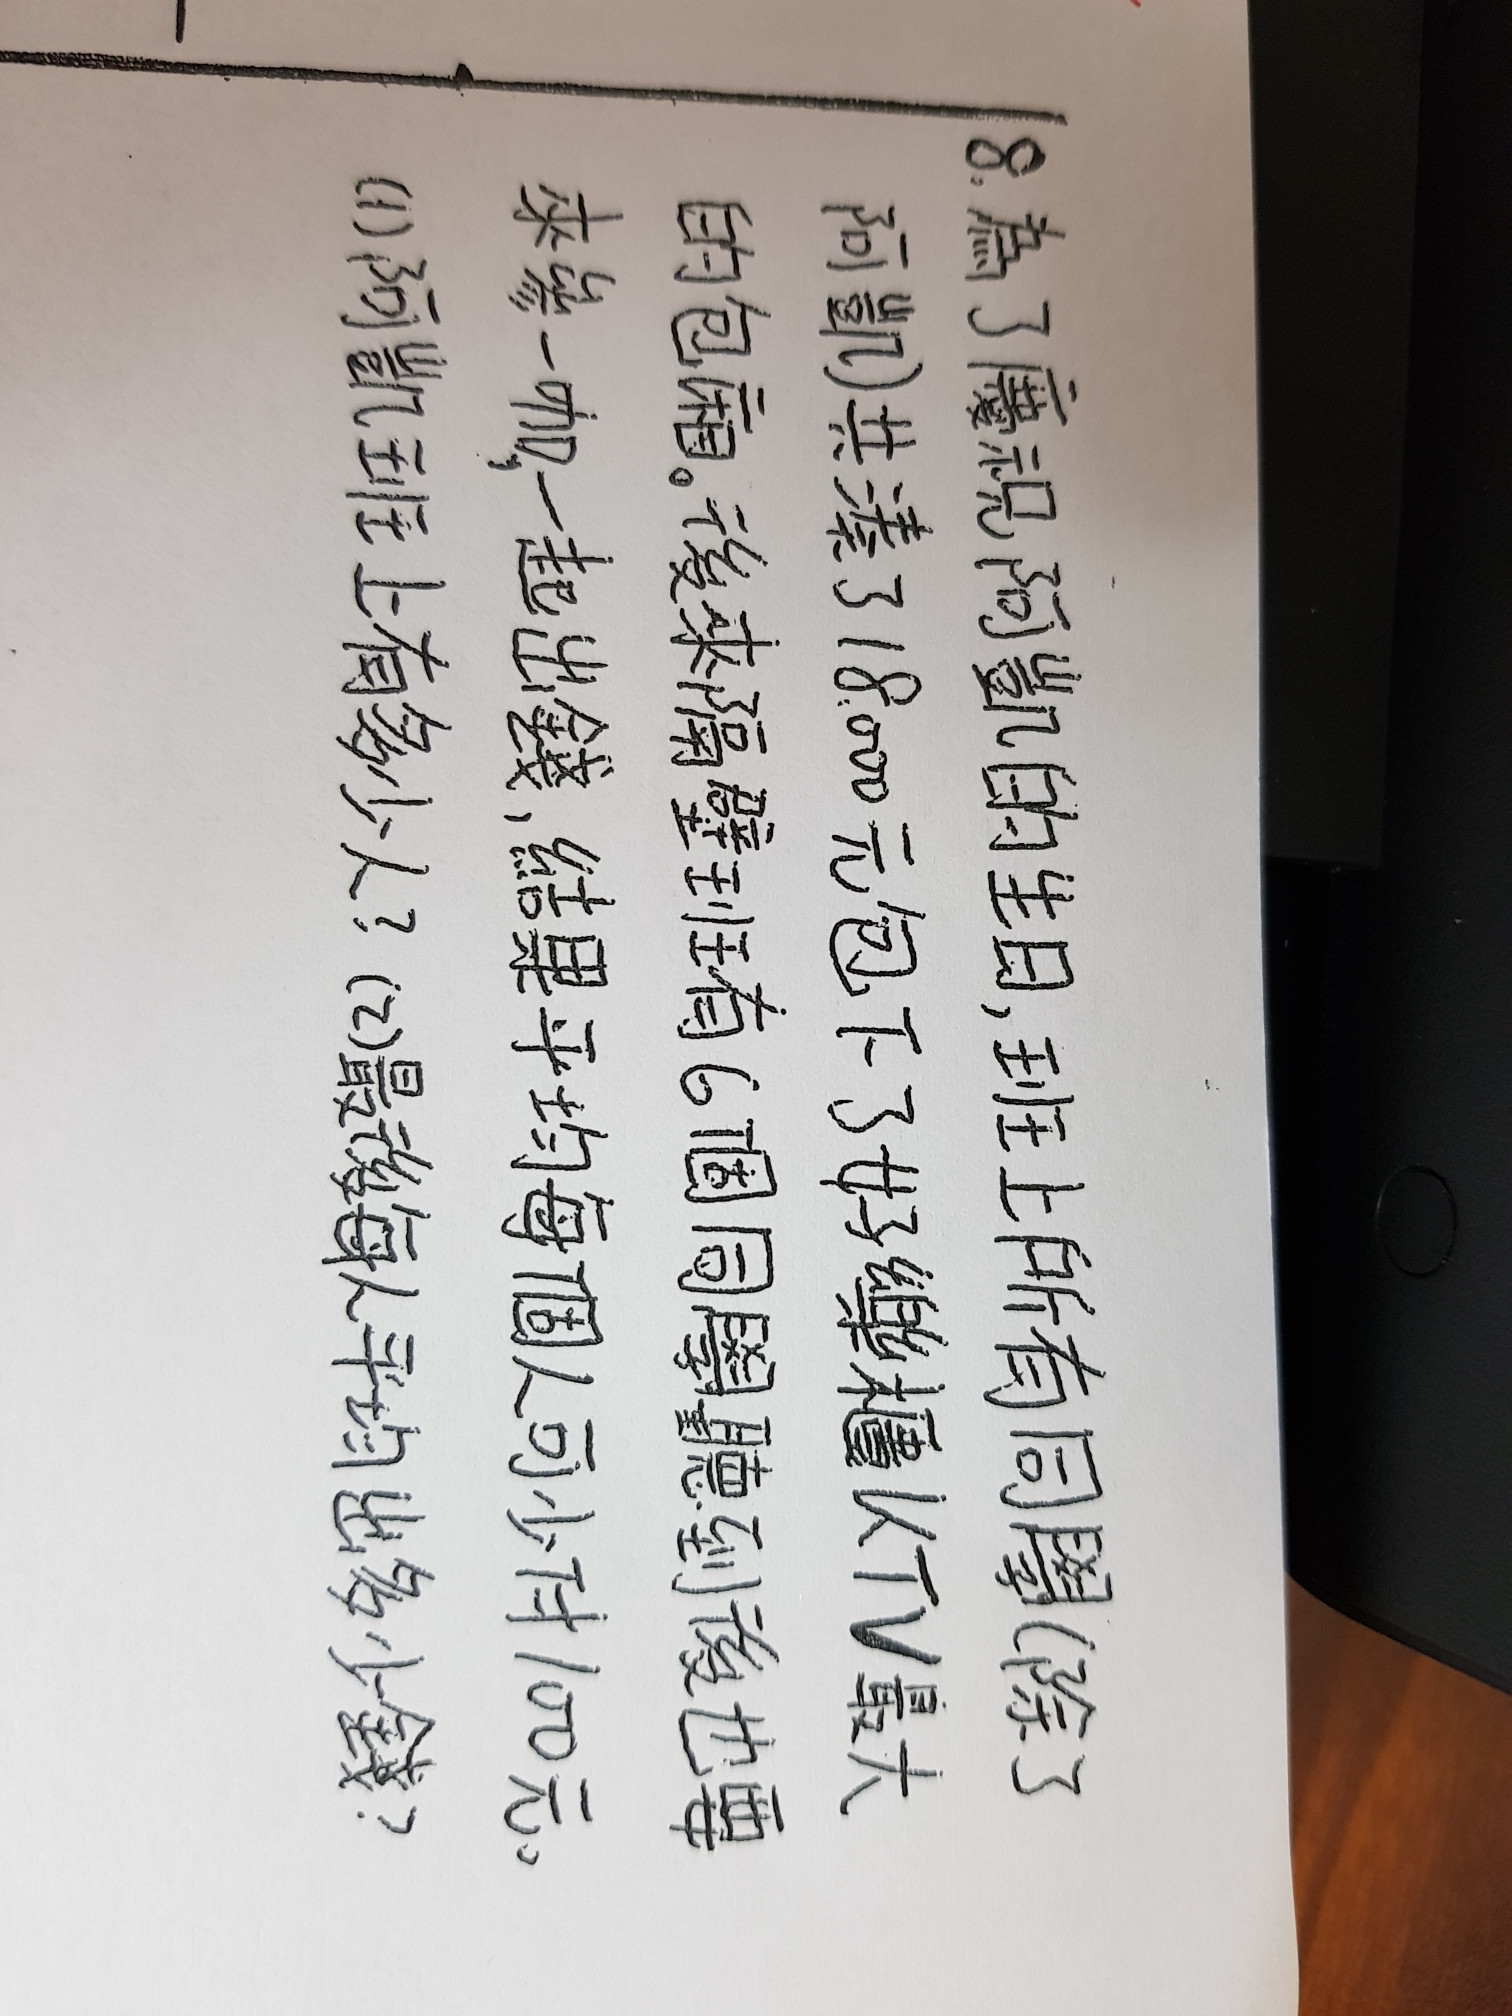 8. 為了慶祝阿凱的生日,班上所有同學(除了
阿凱)共湊了18000元包下了好樂糧KTV最大
的包廂。後來隔壁班有6個同學聽到後也要
來參一咖,一起出錢,結果平均每個人可少付100元。
(1)阿凱班上有多少人?(2)最後每人平均出多少錢?